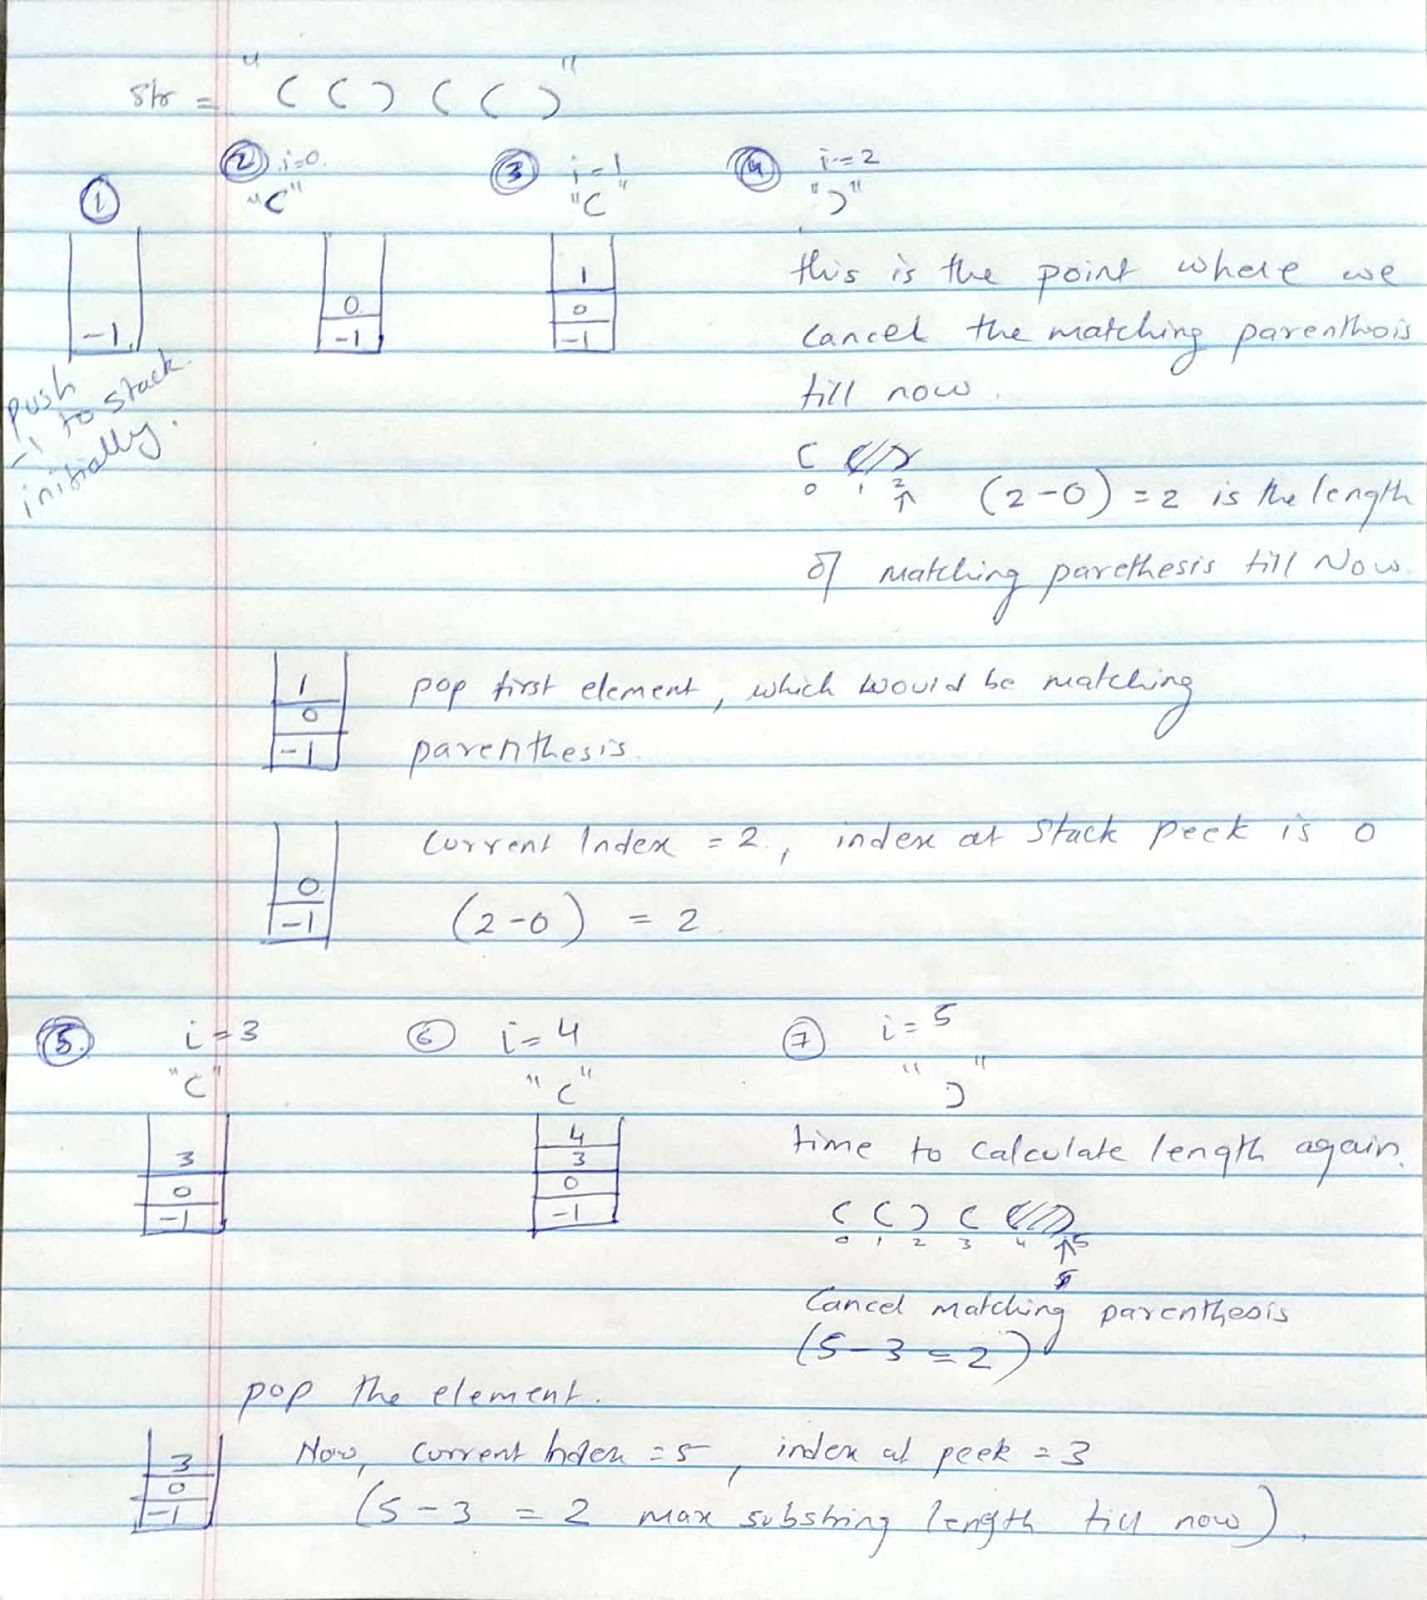 str = "(()(()"
① ② i=0 ③ i=1 ④ i=2
"(" "(" ")"
-1
0
-1
1
0
-1
push
-1 to stack
initially.
this is the point where we
cancel the matching parenthsis
till now.
( ( )
0 1 2
↑
(2-0) = 2 is the length
of matching parethesis till Now.
1
0
-1
pop first element, which would be matching
parenthesis.
0
-1
current Index = 2, index at stack peek is 0
(2-0) = 2
⑤ i=3 ⑥ i=4 ⑦ i=5
"(" "(" ")"
3
0
-1
4
3
0
-1
time to calculate length again.
( ( ) ( ( )
0 1 2 3 4 5
↑
Cancel matching parenthesis
(5-3=2)
pop the element.
3
0
-1
Now, current Index = 5, index at peek = 3
(5-3 = 2 max substring length till now).